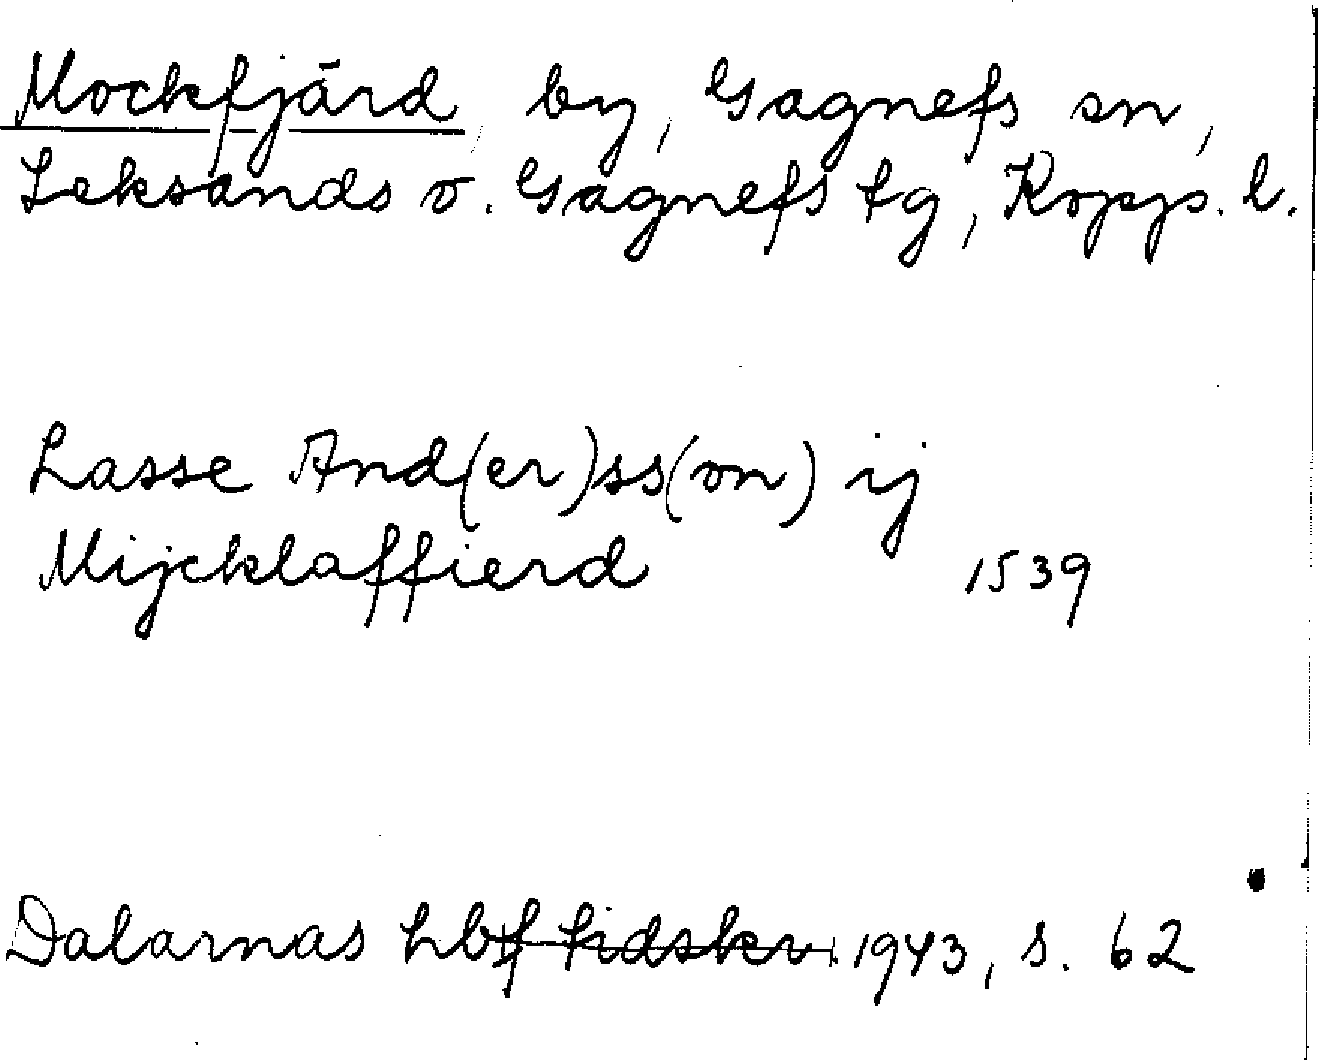 Mockfjärd, by, Gagnefs sn,
Leksands o. Gagnefs tg, Kopps. l.
Lasse And(er)ss(on) ij
Mijcklaffierd 1539
Dalarnas hbf tidskr. 1943, s. 62